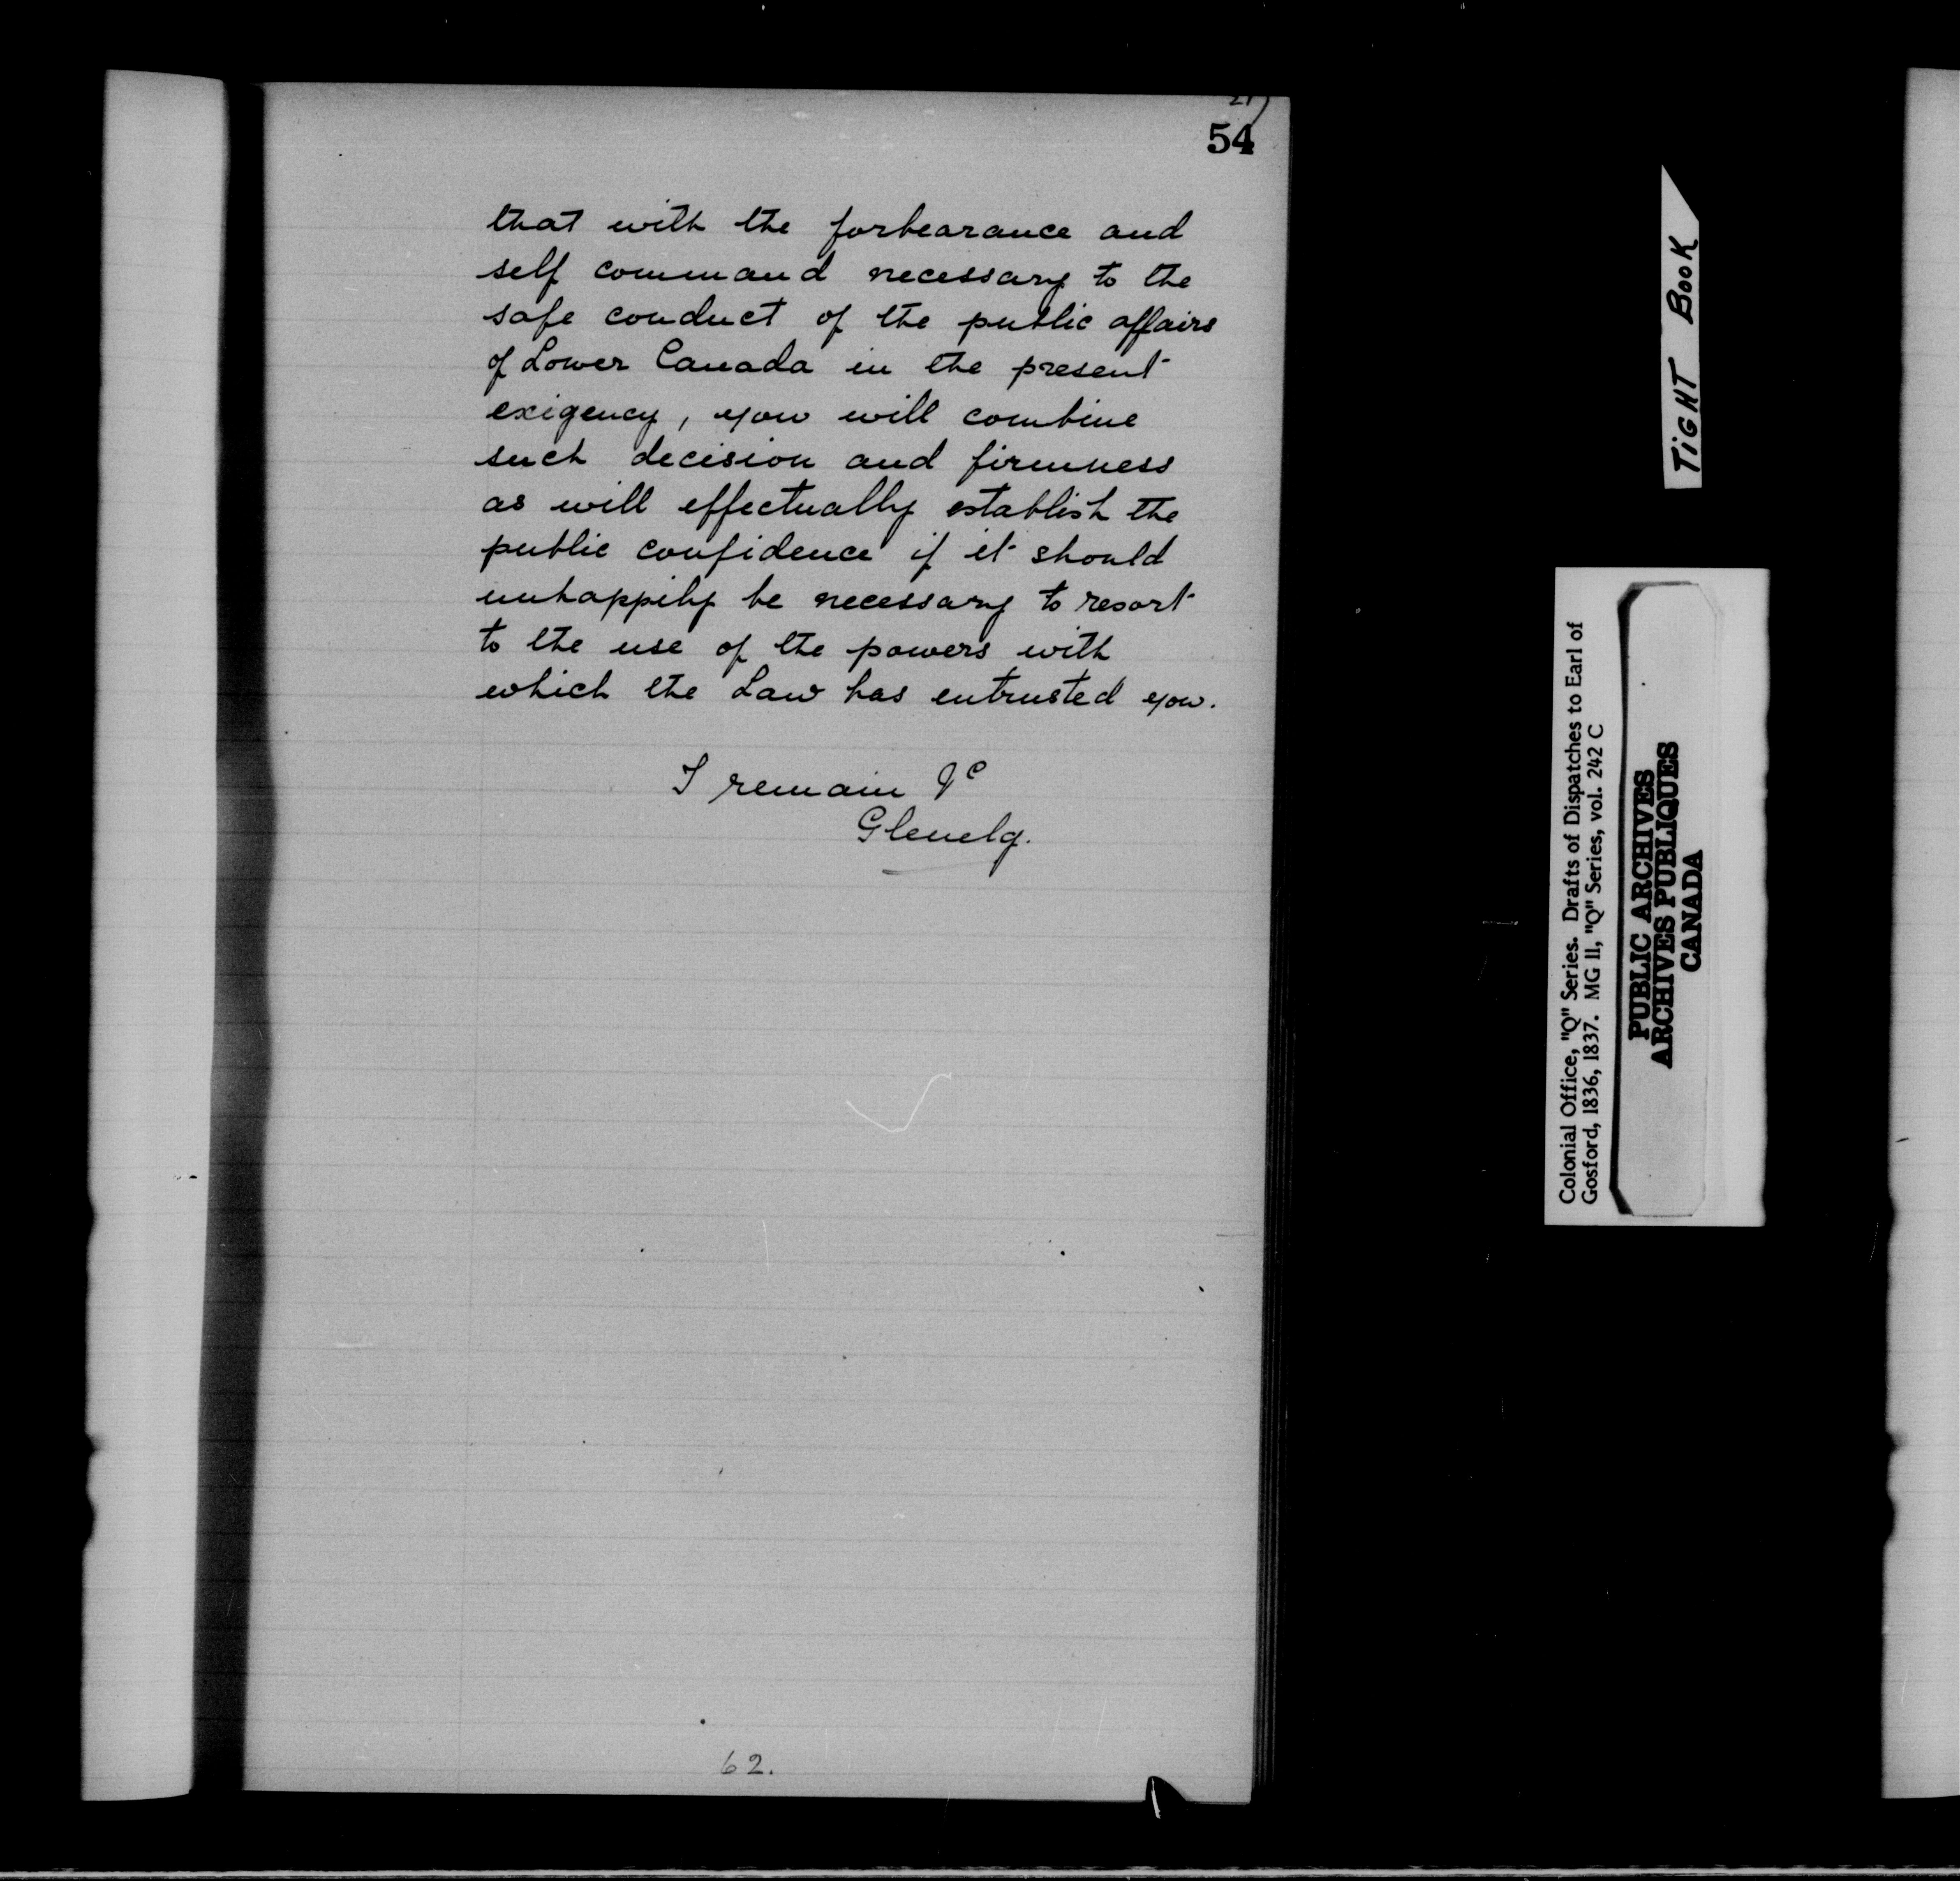 54
that with the forbearance and
self command necessary to the
safe conduct of the public affairs
of Lower Canada in the present
exigency, you will combine
such decision and firmness
as will effectually establish the
public confidence if it should
unhappily be necessary to resort
to the use of the powers with
which the Law has entrusted you.
I remain &c
Glenelg.
62.
TIGHT BOOK
Colonial Office, "Q" Series. Drafts of Dispatches to Earl of
Gosford, 1836, 1837. MG 11, "Q" Series, vol. 242 C
PUBLIC ARCHIVES
ARCHIVES PUBLIQUES
CANADA